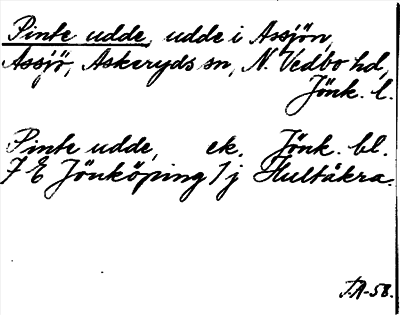 Pinte udde, udde i Assjön,
Assjö, Askeryds sn, N. Vedbo hd,
Jönk. l.
Pinte udde, ek. Jönk. bl.
7 E Jönköping 1 j Hultåkra.
T.A-58.